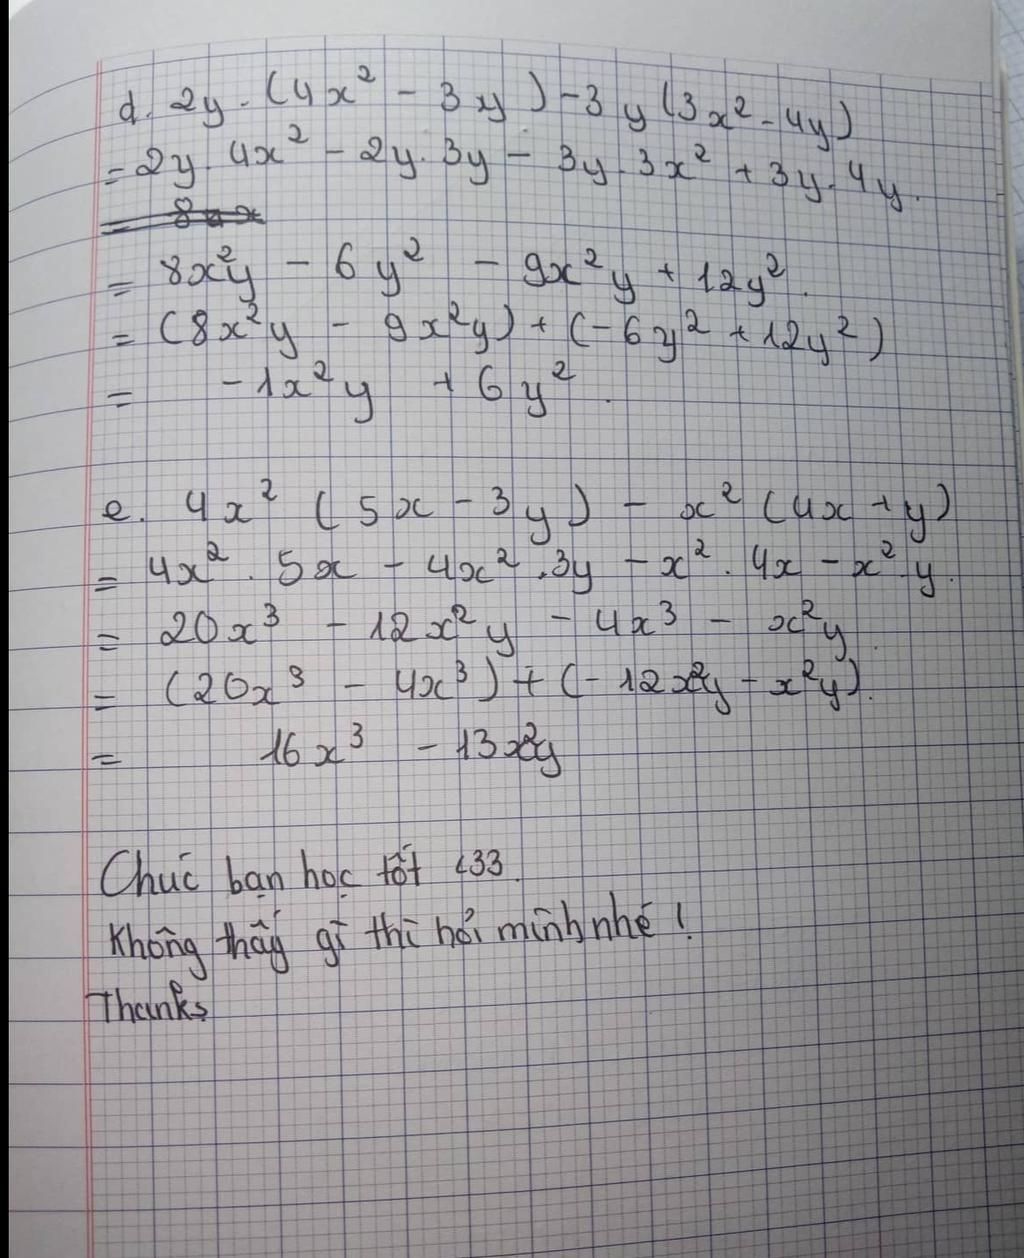 d. 2y. (4x² - 3y) - 3y (3x² - 4y)
= 2y. 4x² - 2y. 3y - 3y. 3x² + 3y. 4y.
= 8x²y - 6y² - 9x²y + 12y².
= (8x²y - 9x²y) + (-6y² + 12y²)
= -1x²y + 6y².
e. 4x² (5x - 3y) - x² (4x + y)
= 4x². 5x - 4x². 3y - x². 4x - x². y.
= 20x³ - 12x²y - 4x³ - x²y.
= (20x³ - 4x³) + (-12x²y - x²y).
= 16x³ - 13x²y
Chúc bạn học tốt <33.
Không thấy gì thì hỏi mình nhé !
Thanks